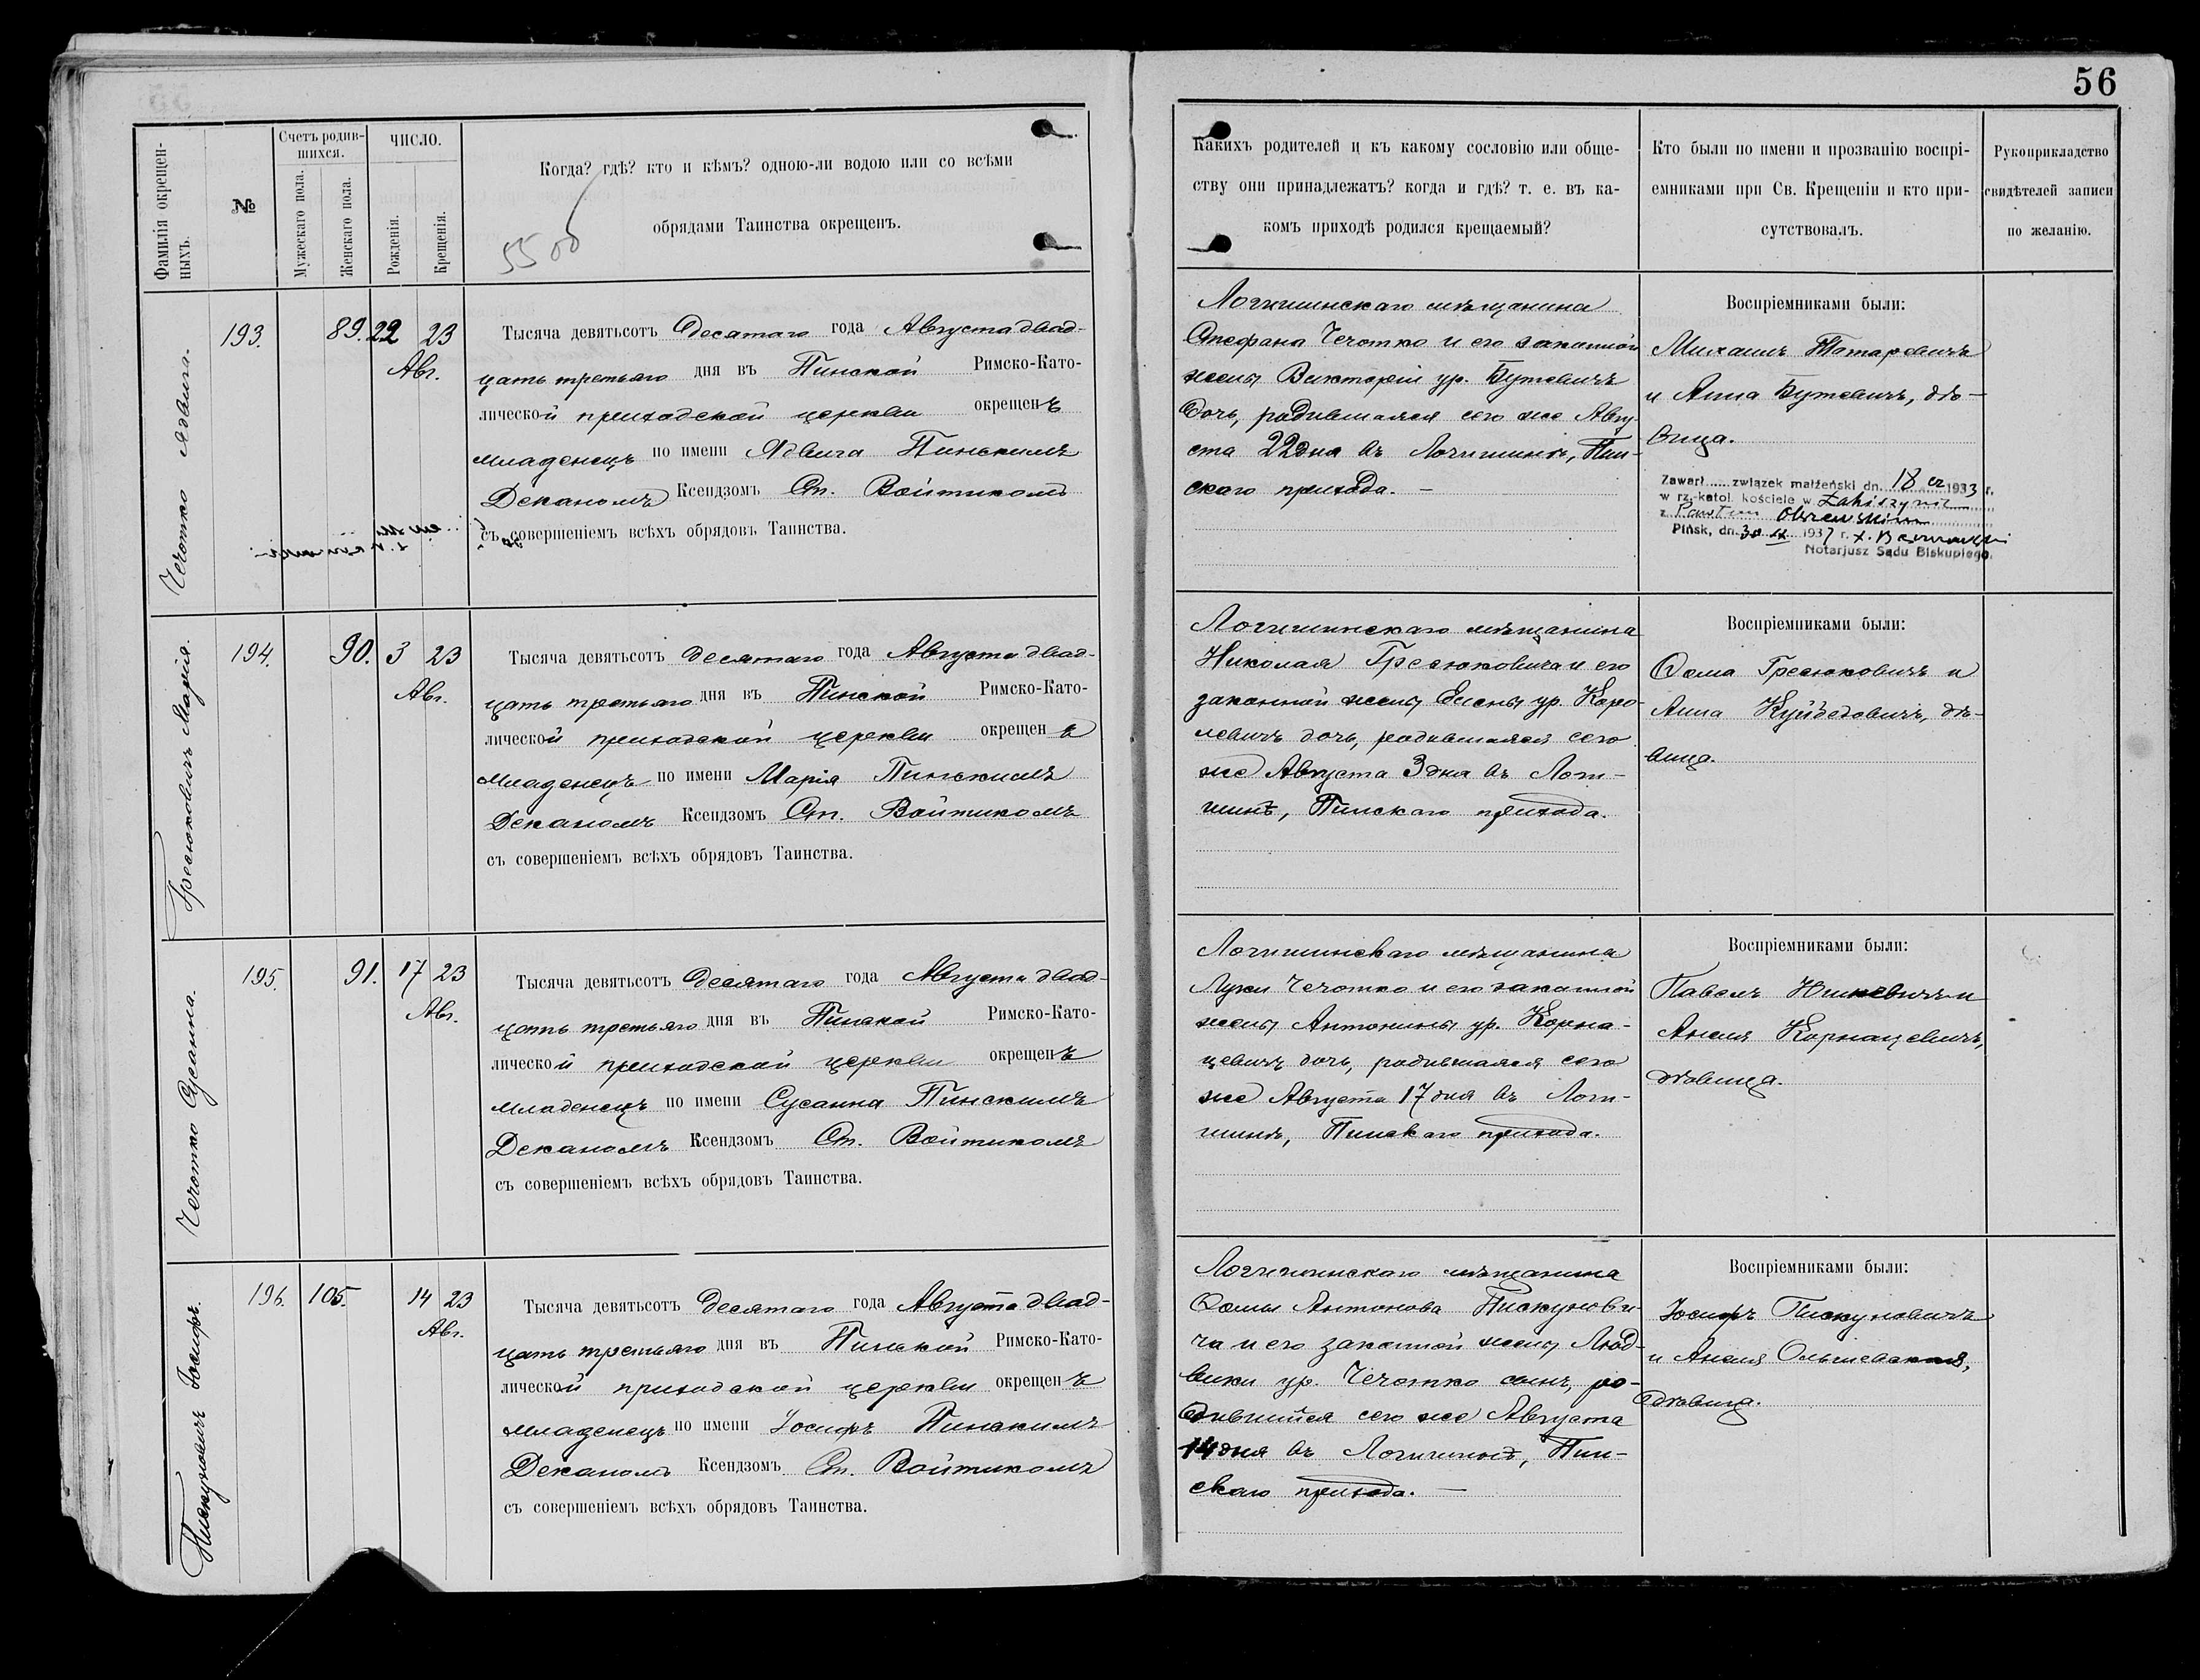 56
Фамилія окрещен-
ныхъ.
№
Счетъ родив-
шихся.
Мужескаго пола.
Женскаго пола.
ЧИСЛО.
Рожденія.
Крещенія.
Когда? гдѣ? кто и кѣмъ? одною-ли водою или со всѣми
обрядами Таинства окрещенъ.
5500
Какихъ родителей и къ какому сословію или обще-
ству они принадлежатъ? когда и гдѣ? т. е. въ ка-
комъ приходѣ родился крещаемый?
Кто были по имени и прозванію воспрі-
емниками при Св. Крещеніи и кто при-
сутствовалъ.
Рукоприкладство
свидѣтелей записи
по желанію.
Чечотко Ядвига.
193.
89. 22 23
Авг.
Тысяча девятьсотъ Десятаго года Августа двад-
цать третьяго дня въ Пинской Римско-Като-
лической приходской церкви окрещенъ
младенецъ по имени Ядвига Пинскимъ
Деканомъ Ксендзомъ Ст. Войтикомъ
съ совершеніемъ всѣхъ обрядовъ Таинства.
Логишинскаго мѣщанина
Стефана Чечотко и его законной
жены Викторіи ур. Бутевичъ
дочь, родившаяся сего же Авгу-
ста 22 дня въ Логишинѣ, Пин-
скаго прихода. —
Воспріемниками были:
Михаилъ Татаревичъ
и Анна Бутевичъ, дѣ-
вица.
Zawarł..... związek małżeński dn. 18 1933 r.
w rz.-katol. kościele w Łahiszynie
z Pawłem Olszewskim
Pińsk, dn. 30 IX 1937 r.
Notarjusz Sądu Biskupiego.
Гресюковичъ Марія.
194.
90. 3 23
Авг.
Тысяча девятьсотъ Десятаго года Августа двад-
цать третьяго дня въ Пинской Римско-Като-
лической приходской церкви окрещенъ
младенецъ по имени Марія Пинскимъ
Деканомъ Ксендзомъ Ст. Войтикомъ
съ совершеніемъ всѣхъ обрядовъ Таинства.
Логишинскаго мѣщанина
Николая Гресюковича и его
законной жены Елены ур. Коро-
левичъ дочь, родившаяся сего
же Августа 3 дня въ Логи-
шинѣ, Пинскаго прихода.
Воспріемниками были:
Ѳома Гресюковичъ и
Анна, дѣ-
вица.
Чечотко Сусанна.
195.
91. 17 23
Авг.
Тысяча девятьсотъ Десятаго года Августа двад-
цать третьяго дня въ Пинской Римско-Като-
лической приходской церкви окрещенъ
младенецъ по имени Сусанна Пинскимъ
Деканомъ Ксендзомъ Ст. Войтикомъ
съ совершеніемъ всѣхъ обрядовъ Таинства.
Логишинскаго мѣщанина
Луки Чечотко и его законной
жены Антонины ур. Корна-
цевичъ дочь, родившаяся сего
же Августа 17 дня въ Логи-
шинѣ, Пинскаго прихода.
Воспріемниками были:
Павелъ и
Анеля Корнацевичъ,
дѣвица.
Пискуновичъ Іосифъ.
196. 105.
14 23
Авг.
Тысяча девятьсотъ Десятаго года Августа двад-
цать третьяго дня въ Пинской Римско-Като-
лической приходской церкви окрещенъ
младенецъ по имени Іосифъ Пинскимъ
Деканомъ Ксендзомъ Ст. Войтикомъ
съ совершеніемъ всѣхъ обрядовъ Таинства.
Логишинскаго мѣщанина
Ѳомы Антонова Пискунови-
ча и его законной жены Люд-
вики ур. Чечотко сынъ, ро-
дившійся сего же Августа
14 дня въ Логишинѣ, Пин-
скаго прихода. —
Воспріемниками были:
Іосифъ Пискуновичъ
и Анеля Ольшевская,
дѣвица.